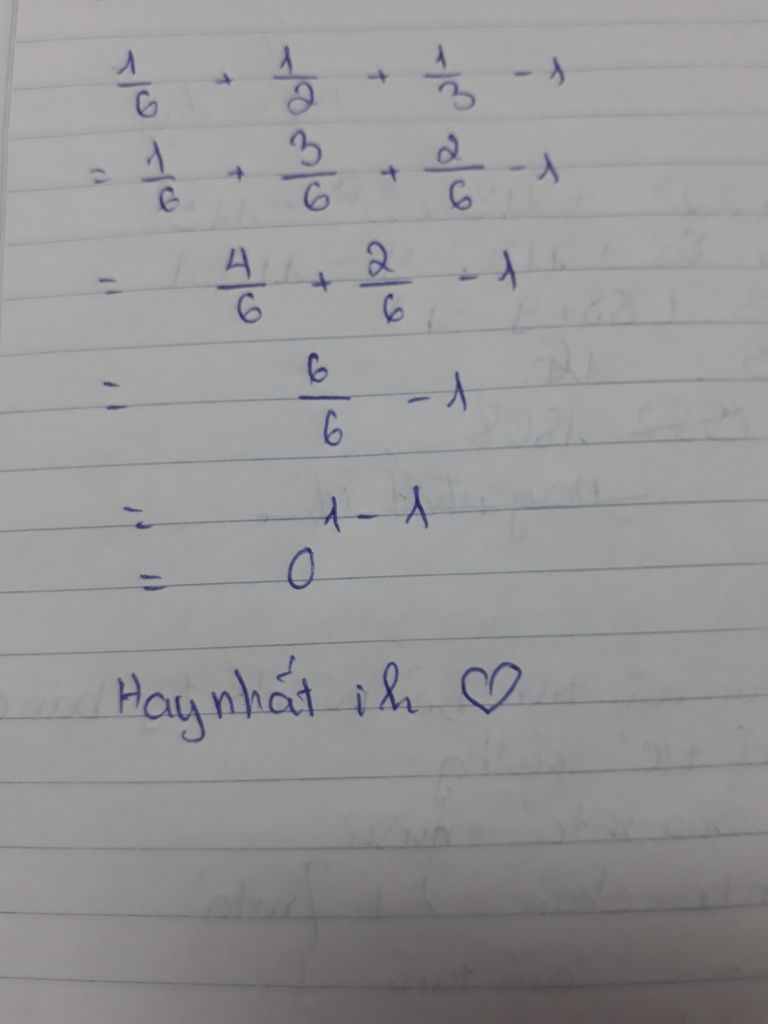 1/6 + 1/2 + 1/3 - 1
= 1/6 + 3/6 + 2/6 - 1
= 4/6 + 2/6 - 1
= 6/6 - 1
= 1 - 1
= 0
Hay nhất ik ♡